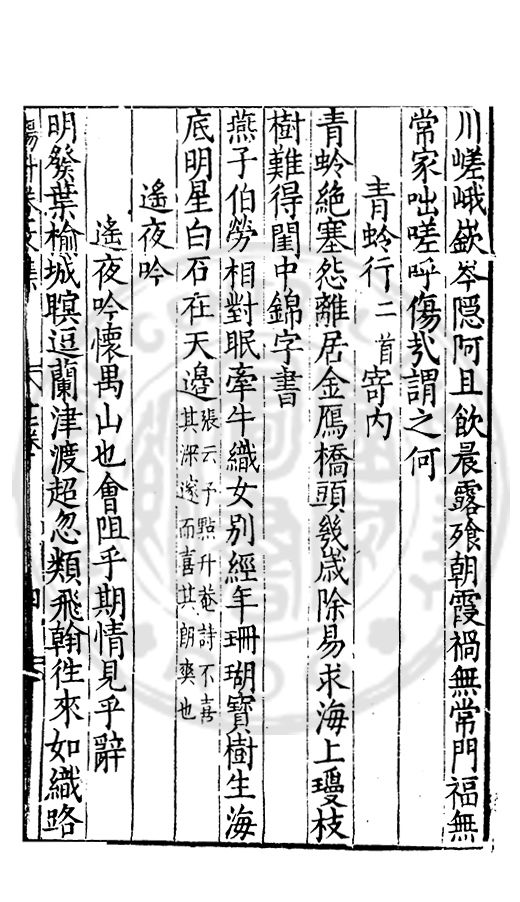 川嵯峨嶔岑隠阿且飲晨露飱朝霞禍無常門福無
常家咄嗟呼傷㢤謂之何
青蛉行二首寄内
青蛉絶塞怨離居金鴈橋頭幾歳除易求海上瓊枝
樹難得閨中錦字書
燕子伯勞相對眠牽牛織女别經年珊瑚寶樹生海
底明星白石在天邊張云予點升菴詩不喜
其深邃而喜其朗爽也
遙夜吟
遙夜吟懷禺山也會阻乎期情見乎辭
明發葉榆城暝逗蘭津渡超忽類飛翰徃來如織路